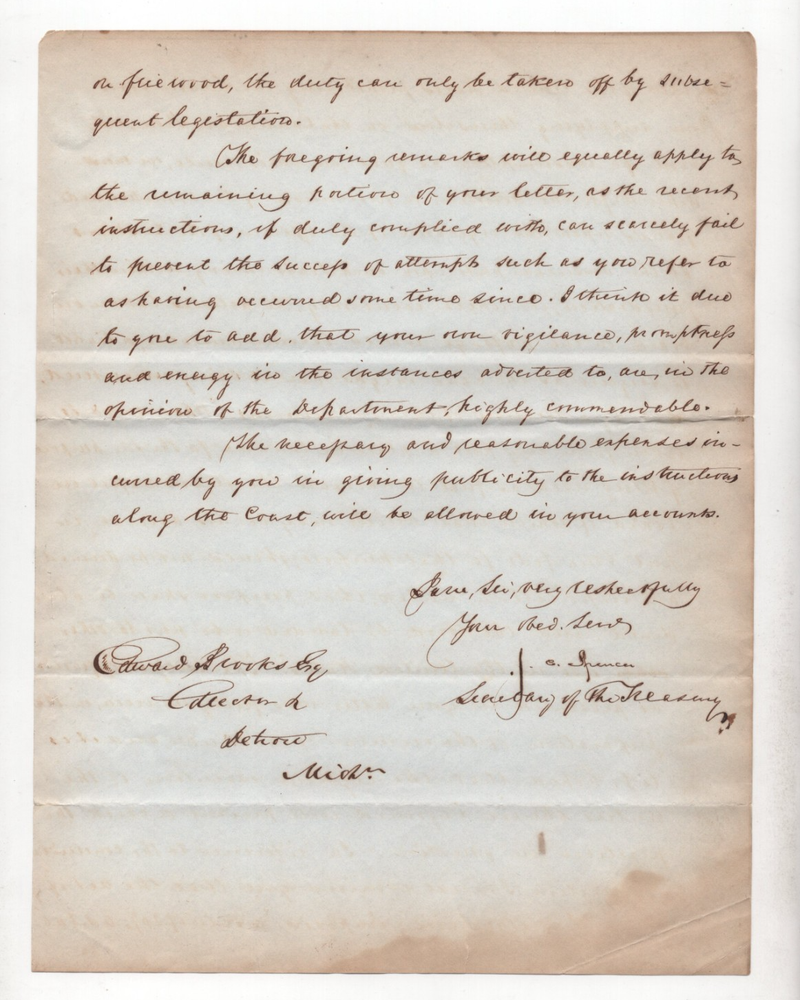 on fire wood, the duty can only be taken off by subse=
quent legislation.
The foregoing remarks will equally apply to
the remaining portion of your letter, as the recent
instructions, if duly complied with, can scarcely fail
to prevent the success of attempts such as you refer to
as having occurred some time since. I think it due
to you to add, that your own vigilance, promptness
and energy in the instances adverted to, are, in the
opinion of the Department, highly commendable.
The necessary and reasonable expenses in-
curred by you in giving publicity to the instructions
along the Coast, will be allowed in your accounts.
I am, Sir, very respectfully
Your obed. Serv
J. C. Spencer
Secretary of the Treasury
Edward Brooks Esq
Collector &
Detroit
Michn.